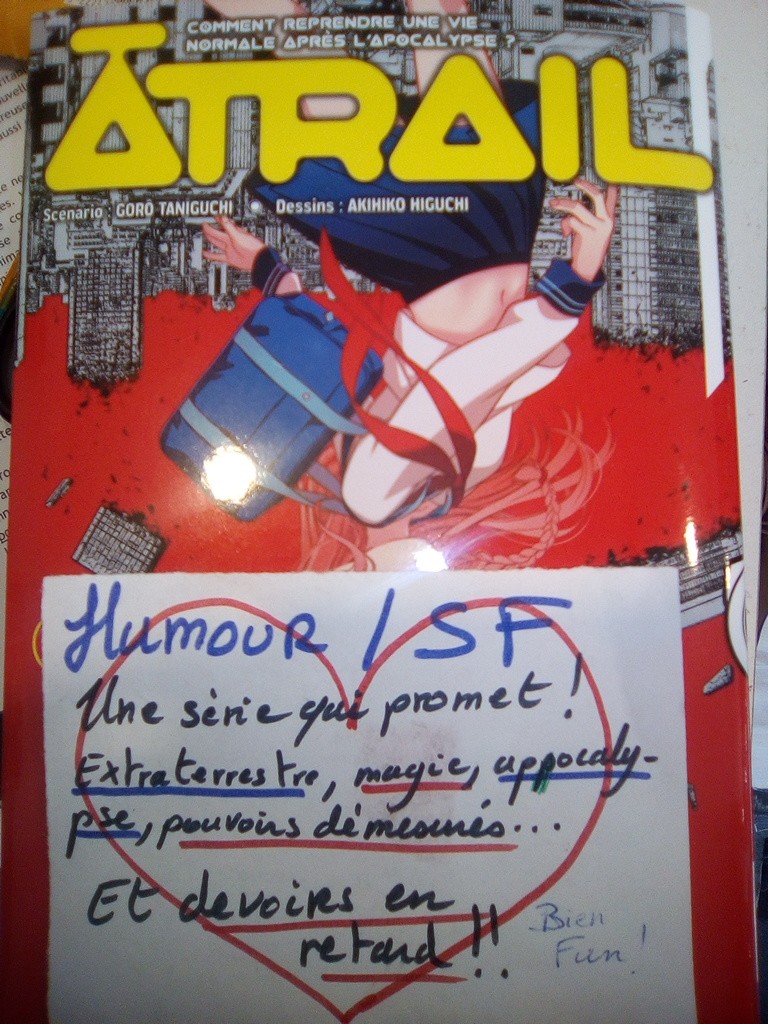 COMMENT REPRENDRE UNE VIE
NORMALE APRÈS L'APOCALYPSE ?
ĀTRAIL
Scenario : GORŌ TANIGUCHI • Dessins : AKIHIKO HIGUCHI
HUMOUR / SF
Une série qui promet !
Extraterrestre, magie, appocaly-
pse, pouvoirs démesurés...
Et devoirs en
retard !!
Bien
Fun !